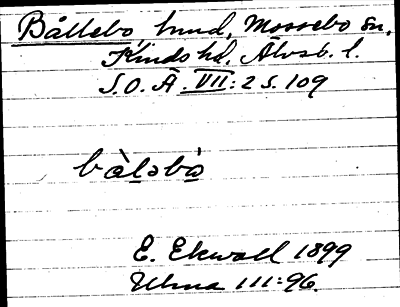 Bållebo, hmd, Mossebo sn,
Kinds hd, Älvsb. l.
S.O.Ä. VII:2 s. 109
bàləbò
E. Ekwall 1899
Ulma 111:96.